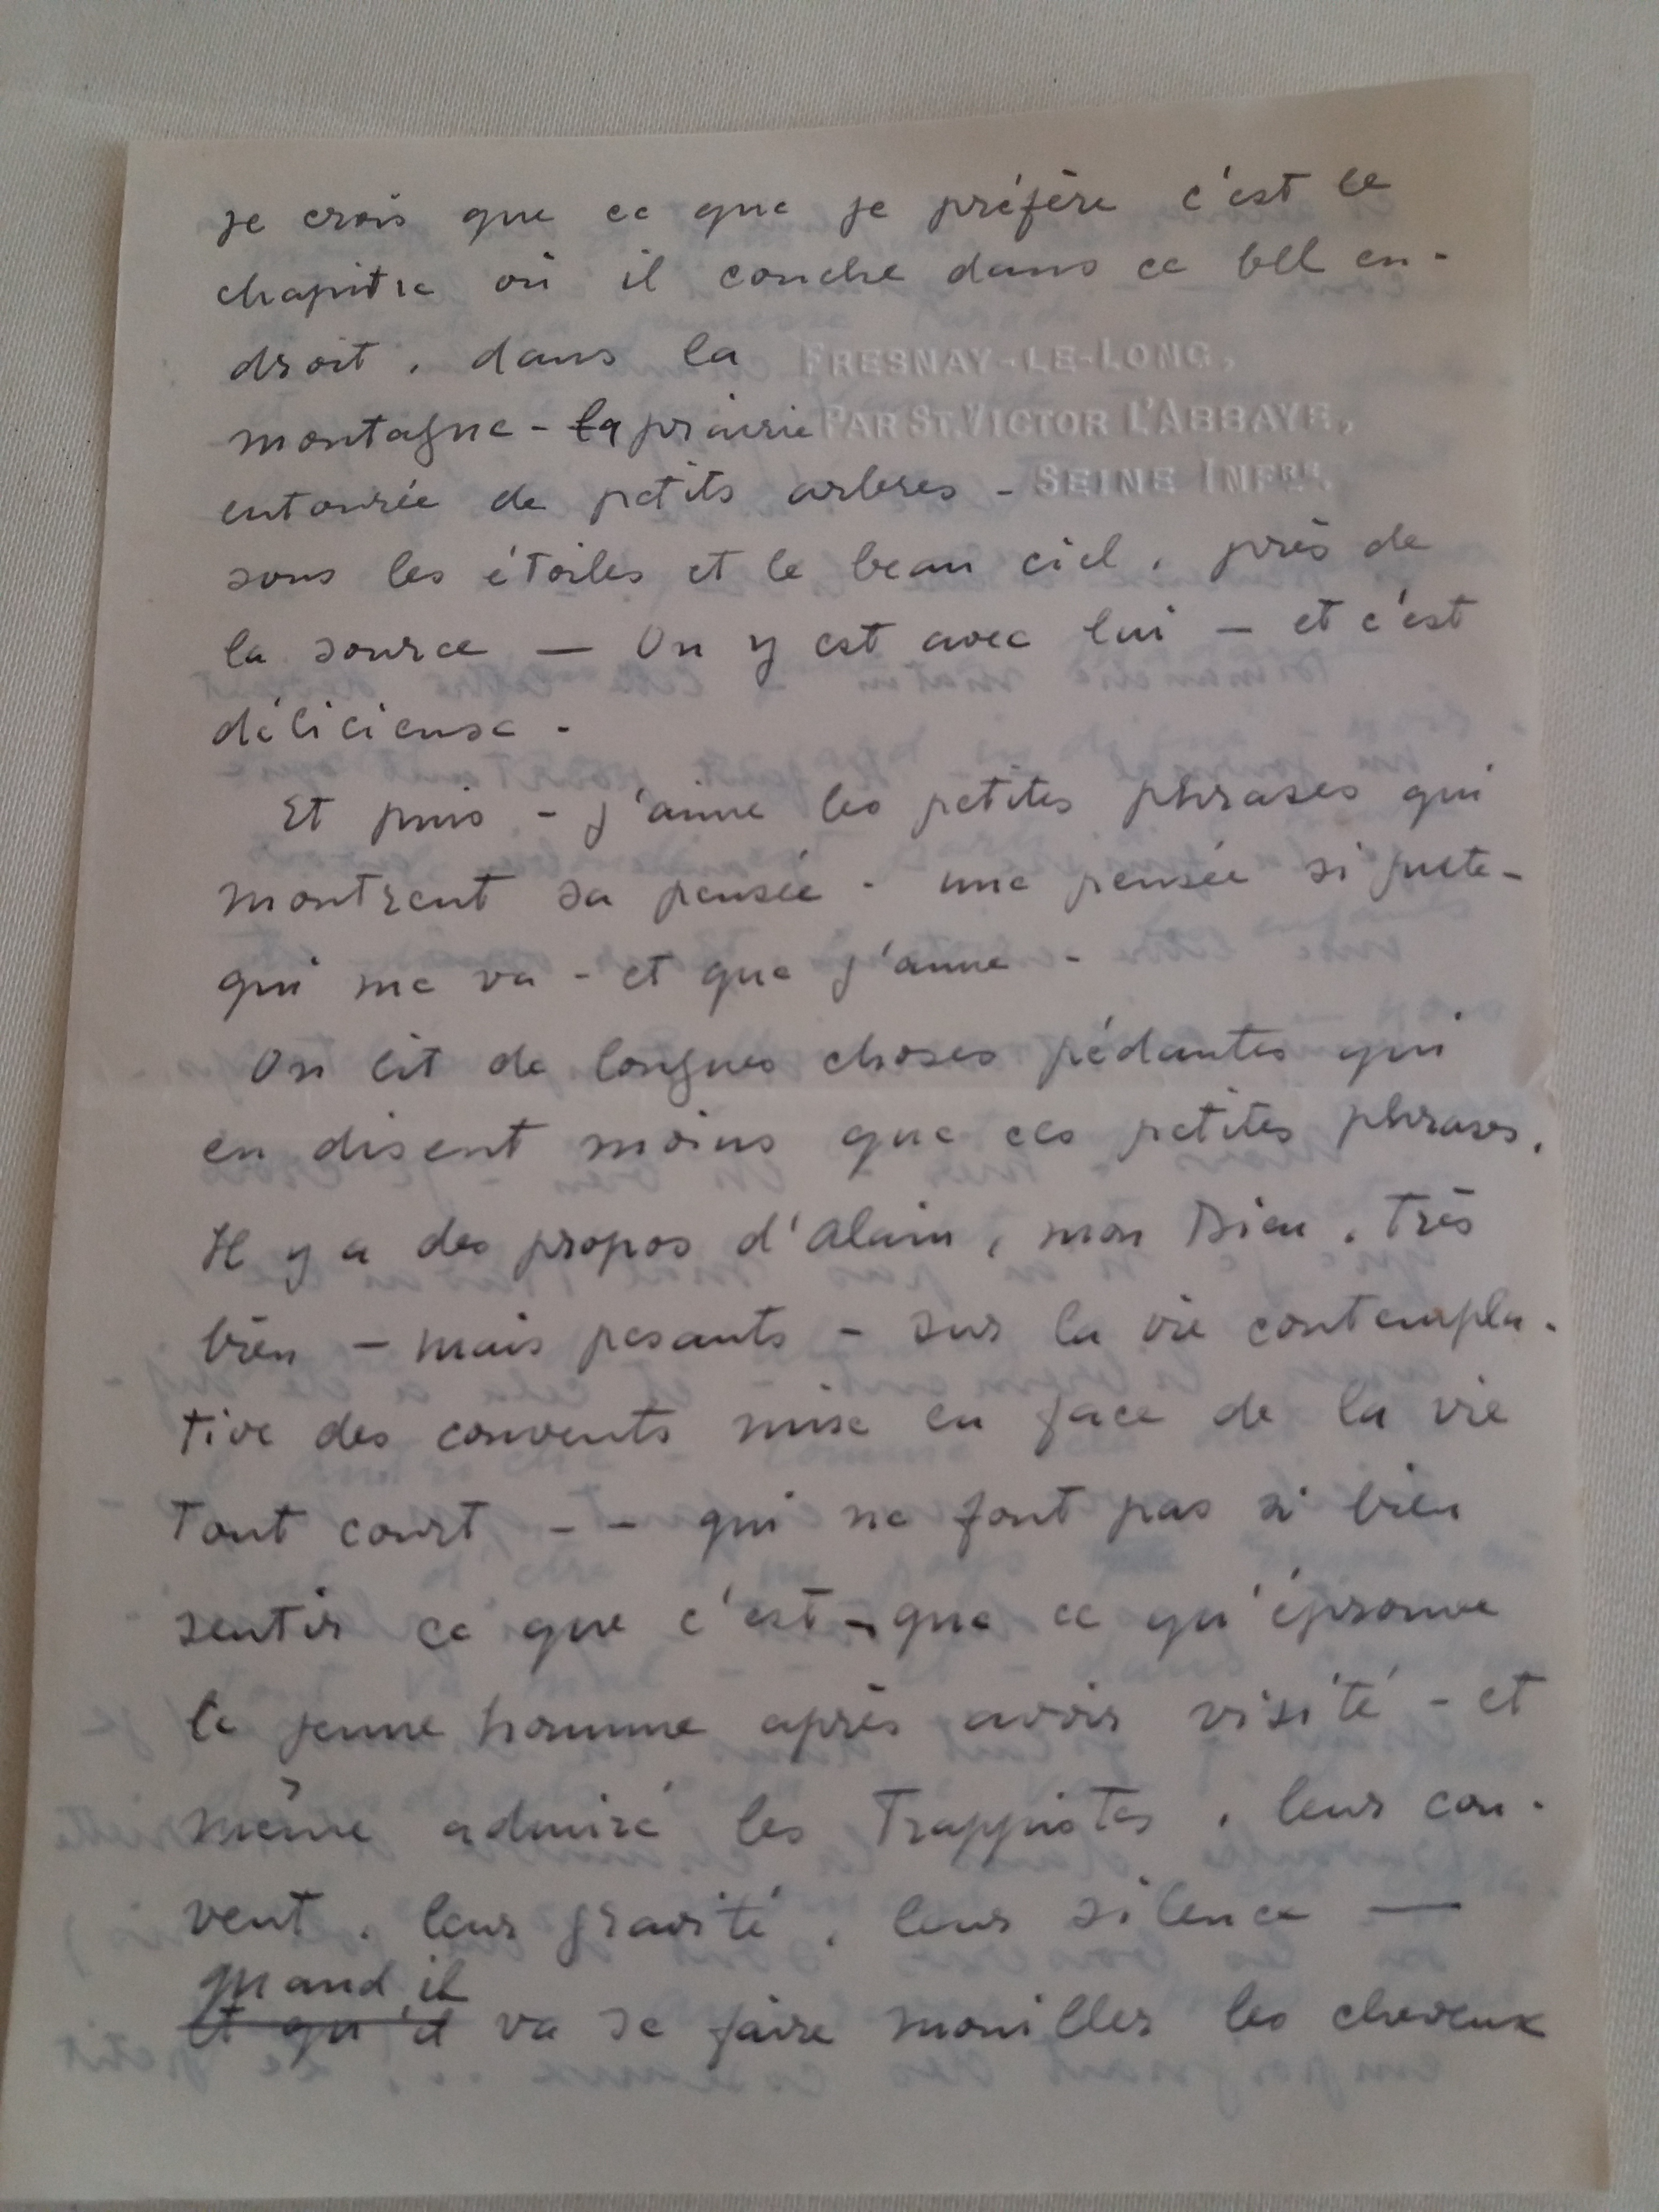 je crois que ce que je préfère c'est le
chapitre où il couche dans ce bel en-
droit, dans la
FRESNAY-LE-LONG,
montagne - la prairie
PAR ST. VICTOR L'ABBAYE,
entourée de petits arbres -
SEINE INFRE.
sous les étoiles et le beau ciel, près de
la source — On y est avec lui — et c'est
délicieuse -
Et puis - j'aime les petites phrases qui
montrent sa pensée - une pensée si juste -
qui me va - et que j'aime -
On lit de longues choses pédantes qui
en disent moins que ces petites phrases.
Il y a des propos d'Alain, mon Dieu, très
bien - mais pesants - sur la vie contempla-
tive des couvents mise en face de la vie
tout court - - qui ne font pas si bien
sentir ce que c'est - que ce qu'éprouve
le jeune homme après avoir visité - et
même admiré les Trappistes, leur cou-
vent, leur gravité, leur silence —
quand il
et qu'il va se faire mouiller les cheveux